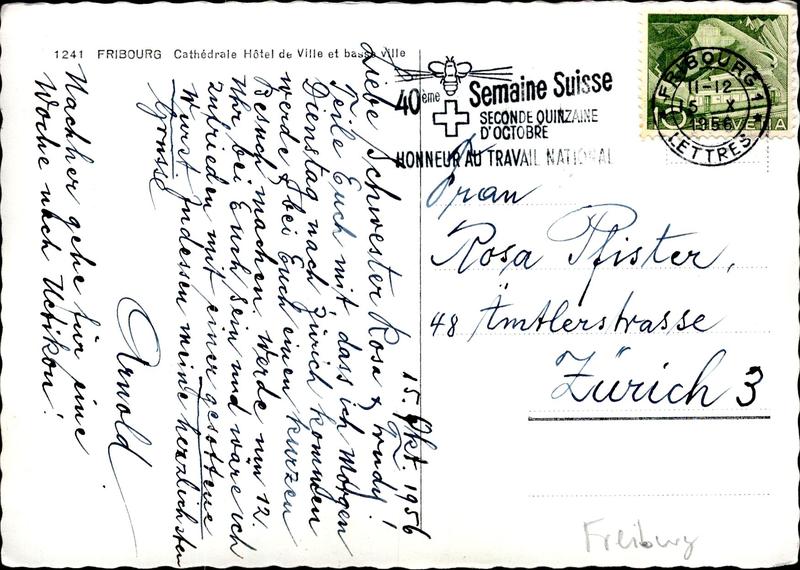 1241 FRIBOURG Cathédrale Hôtel de Ville et basse ville
15. Okt. 1956
Liebe Schwester Rosa & Trudy!
Teile Euch mit dass ich Morgen
Dienstag nach Zürich kommen
werde & bei Euch einen kurzen
Besuch machen. Werde um 12.
Uhr bei Euch sein und wäre ich
zufrieden mit einer gesottene
Wurst. Indessen meine herzlichsten
Grüsse
Arnold
Nachher gehe für eine
Woche nach Uetikon!
40ème Semaine Suisse
SECONDE QUINZAINE
D'OCTOBRE
HONNEUR AU TRAVAIL NATIONAL
FRIBOURG 1
11-12
15 X
1956
LETTRES
10 HELVETIA
Frau
Rosa Pfister,
48 Ämtlerstrasse
Zürich 3
Freiburg